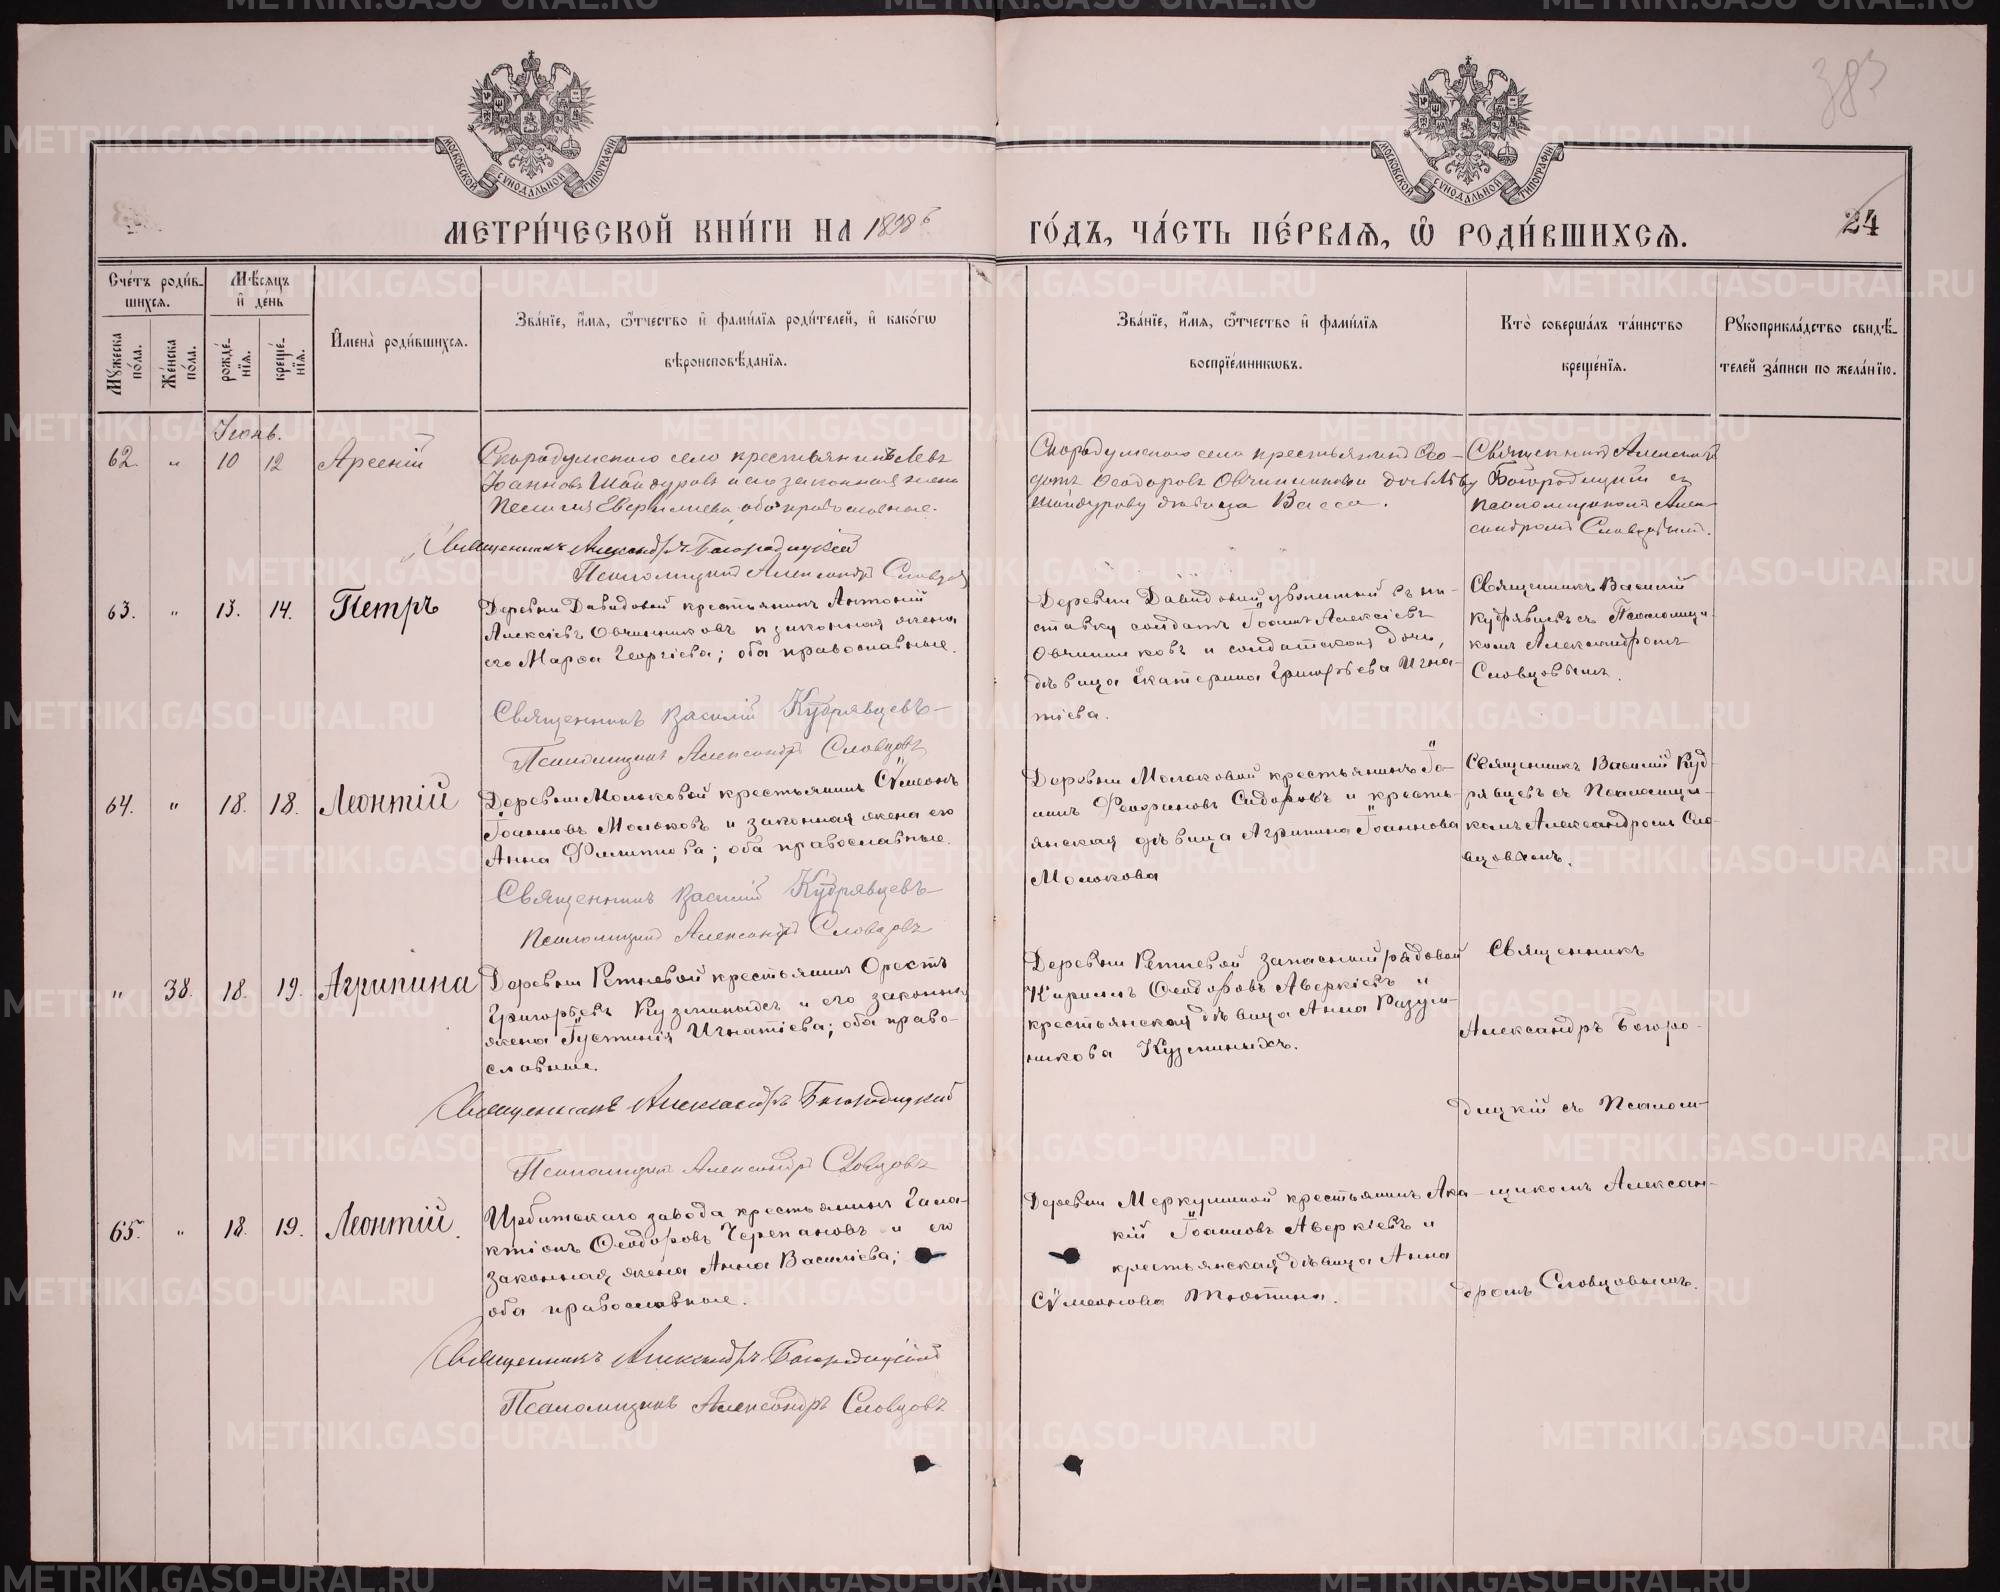 383
МОСКОВСКОЙ СУНОДАЛЬНОЙ ТИПОГРАФІИ
МОСКОВСКОЙ СУНОДАЛЬНОЙ ТИПОГРАФІИ
МЕТРИ́ЧЕСКОЙ КНИ́ГИ НА 1898
ГО́ДЪ, ЧА́СТЬ ПЕ́РВАѦ, Ѡ РОДИ́ВШИХСѦ.
24
Сче́тъ роди́в-
шихся.
Мѣ́сяцъ
и҆ де́нь
Мꙋ́жеска по́ла.
Же́нска по́ла.
рожде́-нїя.
креще́-нїя.
И҆мена̀ роди́вшихся.
Зва́нїе, и҆́мя, ѻ҆́тчество и҆ фами́лїя роди́телей, и҆ како́гѡ
вѣроисповѣ́данїя.
Зва́нїе, и҆́мя, ѻ҆́тчество и҆ фами́лїя
воспрїе́мникѡвъ.
Кто̀ соверша́лъ та́инство
креще́нїя.
Рꙋкоприкла́дство свидѣ́-
телей за́писи по жела́нїю.
Іюнь.
62. " 10 12 Арсеній
Скородумскаго села крестьянинъ Левъ
Іоанновъ Шайдуровъ и его законная жена
Пелагія Евфимиева, оба православные.
Священникъ Александръ Богородицкій
Псаломщикъ Александръ Словцовъ
Скородумскаго села крестьянинъ Ѳео-
дотъ Ѳеодоровъ Овчинниковъ и дочь Льву
Шайдурову дѣвица Васса.
Священникъ Александръ
Богородицкій съ
псаломщикомъ Алек-
сандромъ Словцовымъ.
63. " 13. 14. Петръ
Деревни Давидовой крестьянинъ Антоній
Алексіевъ Овчинниковъ и законная жена
его Марѳа Георгіева; оба православные.
Священникъ Василій Кудрявцевъ
Псаломщикъ Александръ Словцовъ
Деревни Давидовой уволенный въ по-
ставку солдатъ Іоаннъ Алексіевъ
Овчинниковъ и солдатская дочь,
дѣвица Екатерина Григорьева Игна-
тіева.
Священникъ Василій
Кудрявцевъ съ Псаломщи-
комъ Александромъ
Словцовымъ.
64. " 18. 18. Леонтій
Деревни Мольковой крестьянинъ Сѵмеонъ
Іоанновъ Мольковъ и законная жена его
Анна Филиппова; оба православные.
Священникъ Василій Кудрявцевъ
Псаломщикъ Александръ Словцовъ
Деревни Молоковой крестьянинъ Іо-
аннъ Сидоровъ и кресть-
янская дѣвица Агрипина Іоаннова
Молокова
Священникъ Василій Куд-
рявцевъ съ Псаломщи-
комъ Александромъ Сло-
вцовымъ.
" 38. 18. 19. Агрипина
Деревни Ретневой крестьянинъ Орестъ
Григорьевъ Кузминыхъ и его законная
жена Іустинія Игнатіева; оба право-
славные.
Священникъ Александръ Богородицкій
Псаломщикъ Александръ Словцовъ
Деревни Ретневой запасный рядовой
Кириллъ Ѳеодоровъ Аверкіевъ и
крестьянская дѣвица Анна Разум-
никова Кузминыхъ.
Священникъ
Александръ Богоро-
дицкій съ Псалом-
65. " 18. 19. Леонтій.
Ирбитскаго завода крестьянинъ Гала-
ктіонъ Ѳеодоровъ Черепановъ и его
законная жена Анна Василіева;
оба православные.
Священникъ Александръ Богородицкій
Псаломщикъ Александръ Словцовъ
Деревни Меркушиной крестьянинъ Ака-
кій Іоанновъ Аверкіевъ и
крестьянская дѣвица Анна
Сѵмеонова Тюстина.
щикомъ Алексан-
дромъ Словцовымъ.
METRIKI.GASO-URAL.RU